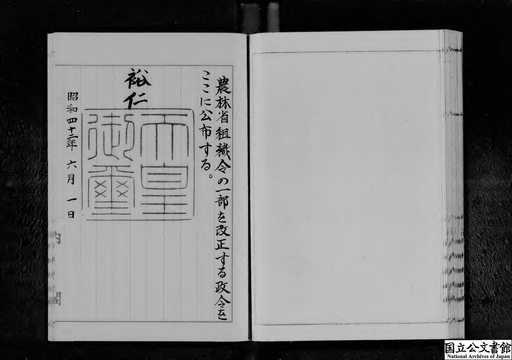 農林省組織令の一部を改正する政令を
ここに公布する。
裕仁
天皇
御璽
昭和四十三年六月一日
内閣
国立公文書館
National Archives of Japan